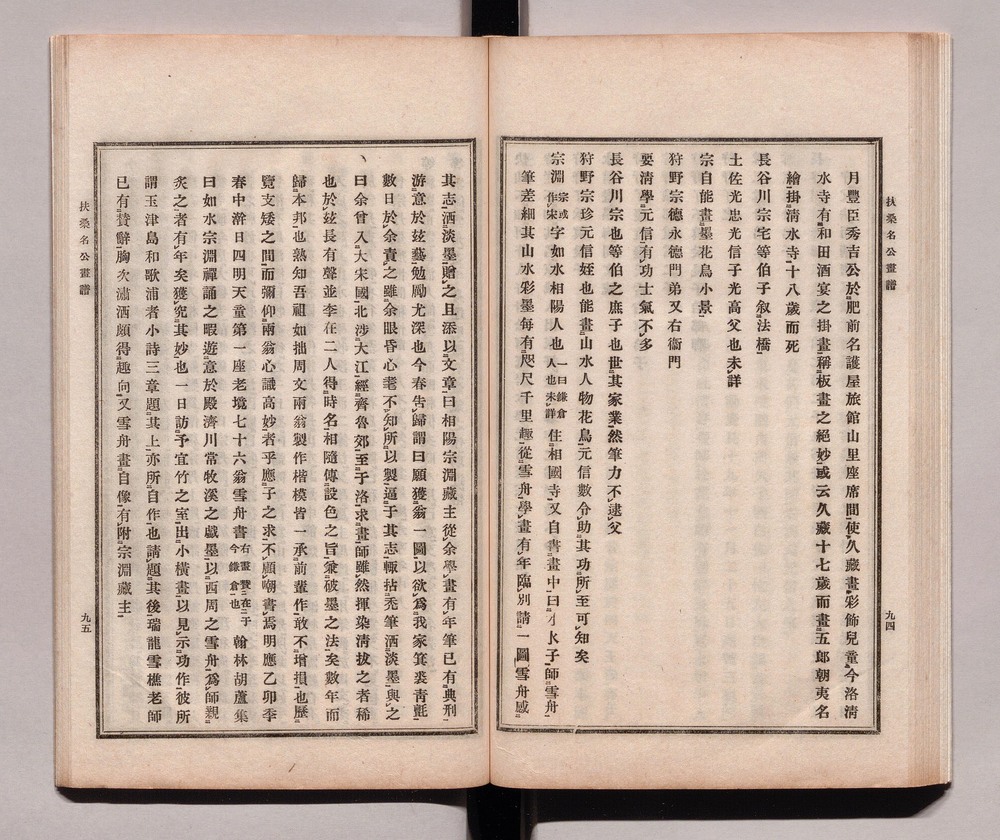 扶桑名公畫譜
九四
月豐臣秀吉公於肥前名護屋旅館山里座席間使久藏畫彩飾兒童今洛淸
水寺有和田酒宴之掛畫稱板畫之絕妙或云久藏十七歲而畫五郎朝夷名
繪掛淸水寺十八歲而死
長谷川宗宅等伯子叙法橋
土佐光忠光信子光高父也未詳
宗自能畫墨花鳥小景
狩野宗德永德門弟又右衞門
要淸學元信有功士氣不多
長谷川宗也等伯之庶子也世其家業然筆力不逮父
狩野宗珍元信姪也能畫山水人物花鳥元信數令助其功所至可知矣
宗淵宗或作宋字如水相陽人也一曰鎌倉人也未詳住相國寺又自書畫中曰水子師雪舟
筆差細其山水彩墨每有咫尺千里趣從雪舟學畫有年臨別請一圖雪舟感
其志洒淡墨贈之且添以文章曰相陽宗淵藏主從余學畫有年筆已有典刑
游意於玆藝勉勵尤深也今春吿歸謂曰願獲翁一圖以欲爲我家箕裘靑氈
數日於余責之雖余眼昏心耄不知所以製逼于其志輙拈禿筆洒淡墨與之
曰余曾入大宋國北涉大江經齊魯郊至于洛求畫師雖然揮染淸拔之者稀
也於玆長有聲並李在二人得時名相隨傳設色之旨兼破墨之法矣數年而
歸本邦也熟知吾祖如拙周文兩翁製作楷模皆一承前輩作敢不增損也歷
覽支矮之間而彌仰兩翁心識高妙者乎應子之求不顧嘲書焉明應乙卯季
春中澣日四明天童第一座老境七十六翁雪舟書右畫贊二在于今鎌倉也翰林胡蘆集
曰如水宗淵禪誦之暇遊意於殿濟川常牧溪之戲墨以西周之雪舟爲師親
炙之者有年矣獲究其妙也一日訪予宜竹之室出小橫畫以見示功作彼所
謂玉津島和歌浦者小詩三章題其上亦所自作也請題其後瑞龍雪樵老師
已有贊辭胸次瀟洒頗得趣向又雪舟畫自像有附宗淵藏主
扶桑名公畫譜
九五